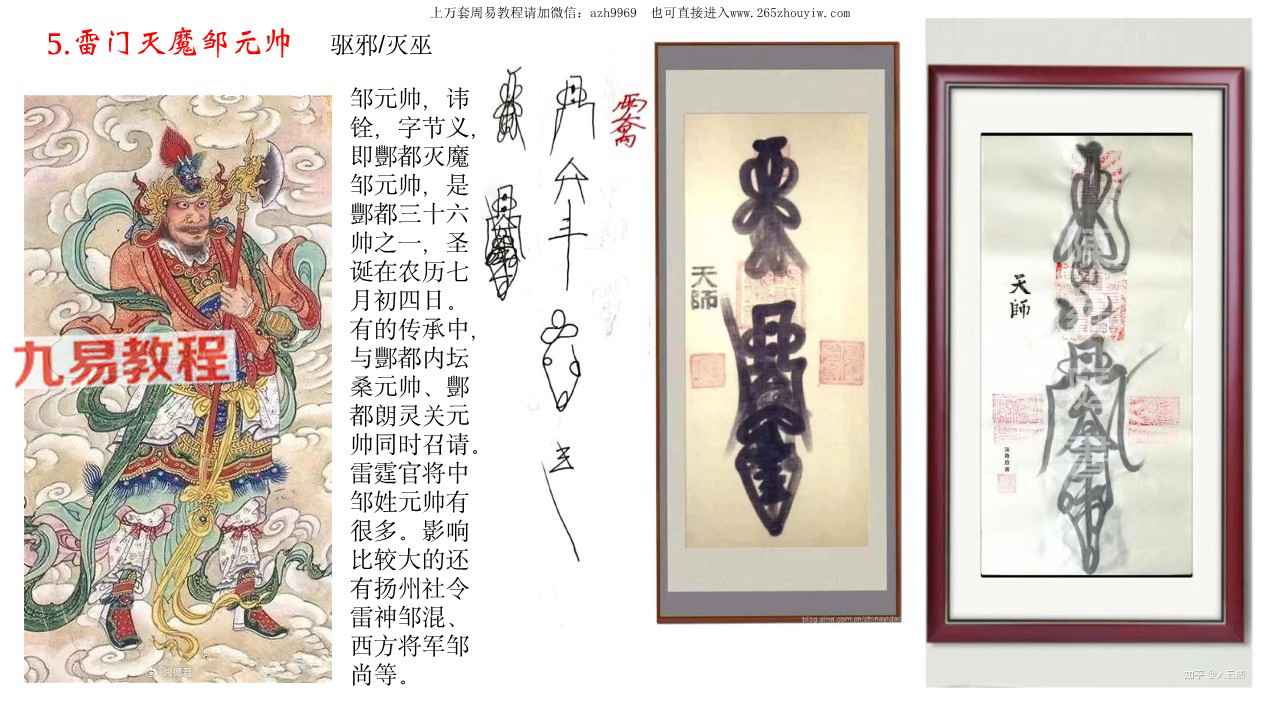 上万套周易教程请加微信：azh9969 也可直接进入www.265zhouyiw.com
5.雷门灭魔邹元帅 驱邪/灭巫
邹元帅，讳
铨，字节义，
即酆都灭魔
邹元帅，是
酆都三十六
帅之一，圣
诞在农历七
月初四日。
有的传承中，
与酆都内坛
桑元帅、酆
都朗灵关元
帅同时召请。
雷霆官将中
邹姓元帅有
很多。影响
比较大的还
有扬州社令
雷神邹混、
西方将军邹
尚等。
九易教程
天師
天师